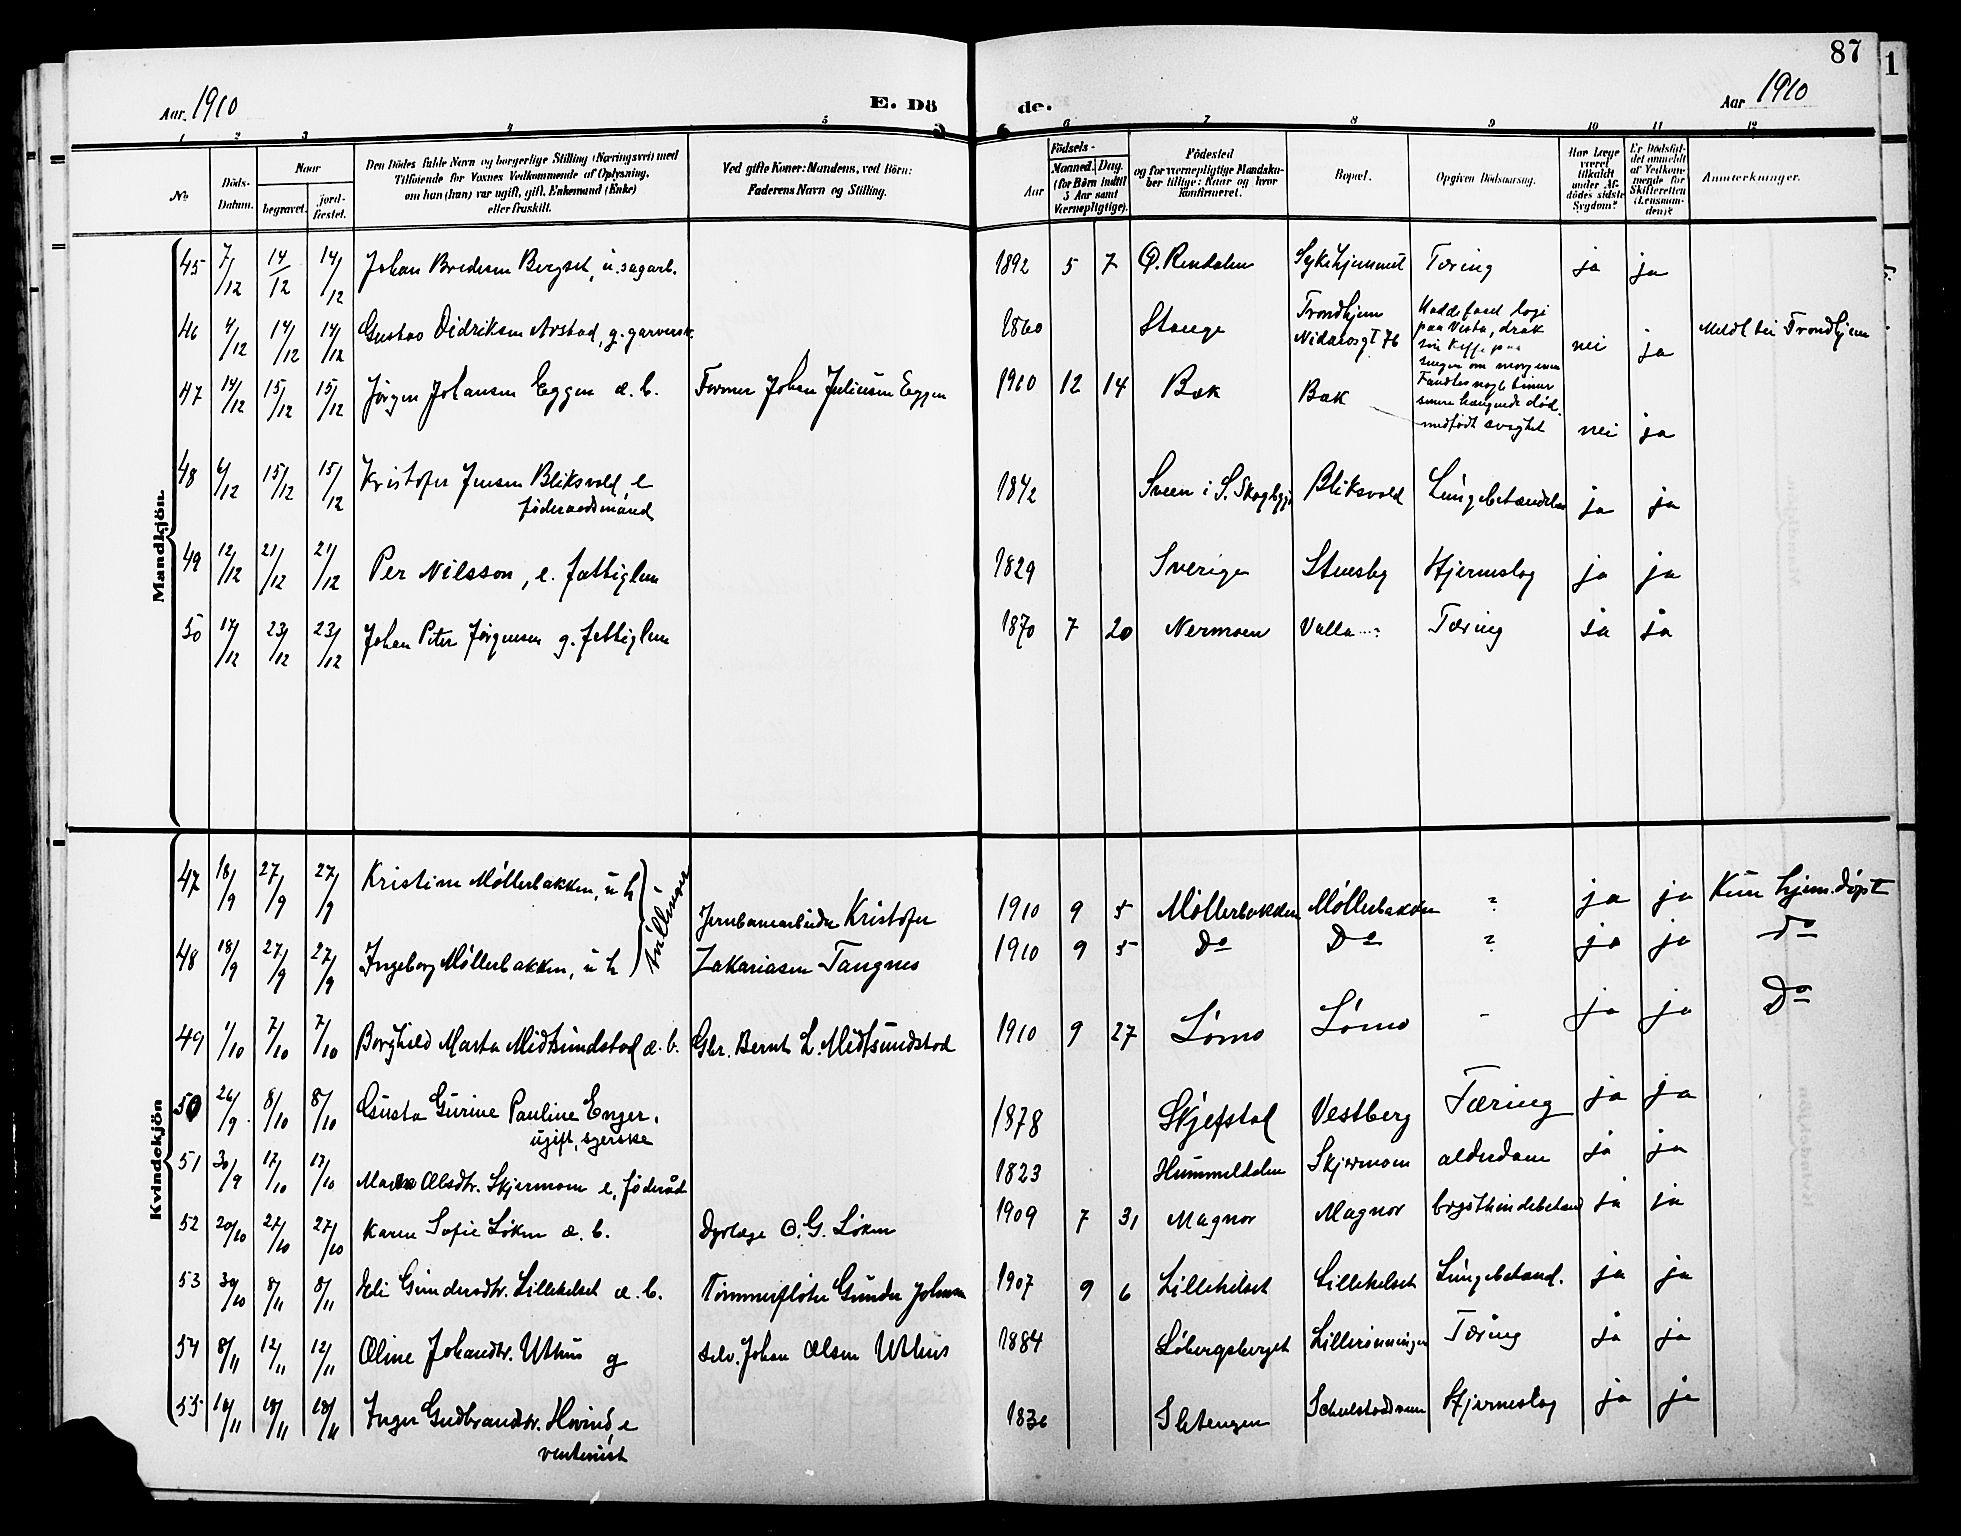 87
1
Aar 1910
E. Dö
de.
Aar 1910
1 2 3 4 5 6 7 8 9 10 11 12
No.
Döds-Datum.
Naar
begravet.
jord-fæstet.
Den Dödes fulde Navn og borgerlige Stilling (Næringsvei) med
Tilföiende for Voxnes Vedkommende af Oplysning,
om han (hun) var ugift, gift, Enkemand (Enke)
eller fraskilt.
Ved gifte Koner: Mandens, ved Börn:
Faderens Navn og Stilling.
Födsels-
Aar
Maaned. Dag.
(for Börn indtil
5 Aar samt
Værnepligtige).
Födested
og for værnepligtige Mandsku-
ber tillige: Naar og hvor
konfirmeret.
Bopæl.
Opgiven Dödsaarsag.
Har Læge
været
tilkaldt
under Af-
dödes sidste
Sygdom?
Er Dödsfal-
det anmeldt
af Vedkom-
mende for
Skifteretten
(Lensman-
den)?
Anmerkninger.
Mandkjön.
45 7/12 14/12 14/12 Johan Bredesen Bergset, u. sagarb. 1892 5 7 Ø. Rendalen Sykehjemmet Tæring ja ja
46 4/12 14/12 14/12 Gustav Didriksen Arstad, g. garversk 1860 Stange Trondhjem Nidarosgt 76 Hadde faaet logi
paa Vesta, drak
sin kaffe paa
sengen om morgenen
Fandtes nogle timer
senere hængende død. nei ja Meldt til Trondhjem
47 14/12 15/12 15/12 Jørgen Johansen Eggen æ. b. Former Johan Juliusen Eggen 1910 12 14 Bæk Bæk medfødt svaghet nei ja
48 6/12 15/12 15/12 Kristofer Jensen Bliksvold, e
føderaadsmand 1842 Sveen i S. Skogbygd Bliksvold Lungebetændelse ja ja
49 12/12 21/12 21/12 Per Nilsson, e. fattiglem 1829 Sverige Stensby Hjerneslag ja ja
50 17/12 23/12 23/12 Johan Peter Jørgensen g. fattiglem 1870 7 20 Nermoen Valla Tæring ja ja
Kvindekjön
47 18/9 27/9 27/9 Kristine Møllerbakken, u h tvillinger Jernbanearbeider Kristofer 1910 9 5 Møllerbakken Møllerbakken ? ja ja Kun hjem.døpt
48 18/9 27/9 27/9 Ingeborg Møllerbakken, u h Zakariasen Tangnes 1910 9 5 Do Do ? ja ja Do
49 1/10 7/10 7/10 Borghild Marta Midtsundstad æ. b. Gbr. Bernt L. Midtsundstad 1910 9 27 Lømo Lømo - ja ja Do
50 26/9 8/10 8/10 Gusta Gurine Pauline Enger.
ugift, syerske 1878 Skjefstad Vestberg Tæring ja ja
51 30/9 17/10 17/10 Maren Olsdtr. Skjermoen e, føderåd 1823 Hummeldalen Skjermoen alderdom ja ja
52 20/10 27/10 27/10 Karen Sofie Løken æ. b. Dyrlæge O. G. Løken 1909 7 31 Magnor Magnor brysthindebetænd ja ja
53 30/10 8/11 8/11 Eli Gundersdtr. Lillekelset æ. b. Tømmerfløter Gunder Johnsen 1907 9 6 Lillekelset Lillekelset Lungebetænd. ja ja
54 8/11 12/11 12/11 Oline Johandtr. Uthus g selv. Johan Olsen Uthus 1884 Løbergsberget Lillerønningen Tæring ja ja
55 10/11 18/11 18/11 Inger Gudbrandsdtr. Hovind, e
ventenist 1836 Sletengen Schulstadsveen Hjerneslag ja ja